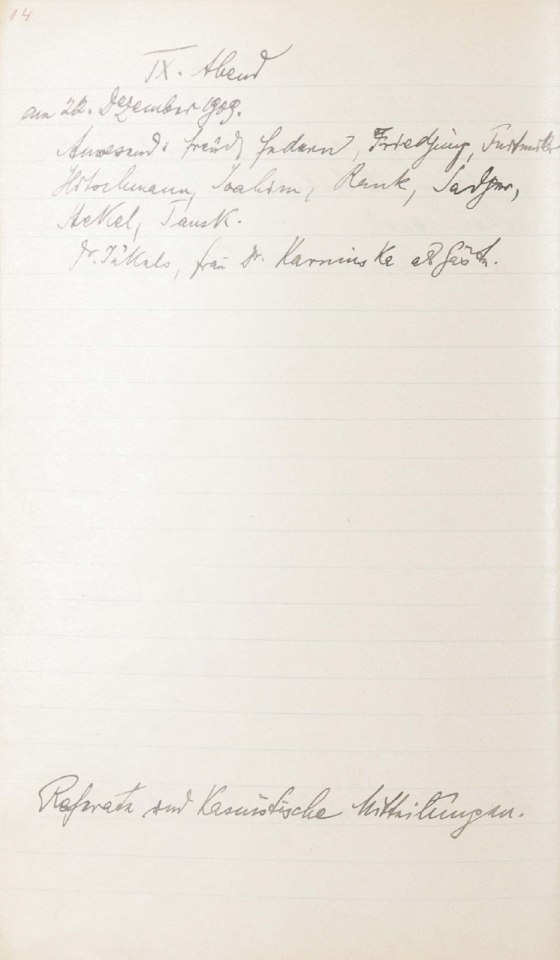 14
IX. Abend
am 22. Dezember 1909.
Anwesend: Freud, Federn, Friedjung, Furtmüller
Hitschmann, Joachim, Rank, Sadger,
Stekel, Tausk.
Dr. Jekels, Frau Dr. Karminska als Gäste.
Referate und Kasuistische Mitteilungen.